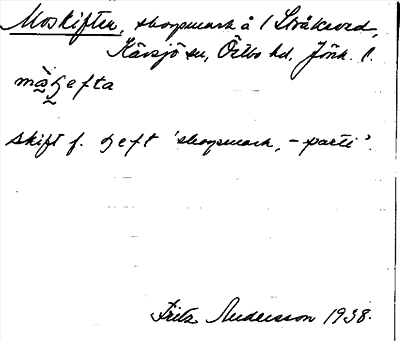 Moskiften, skogsmark å 1 Stråkeved,
Kävsjö sn, Östbo hd. Jönk. l.
mò̰ʂefta
skift f. ʂeft 'skogsmark, -parti'.
Fritz Andersson 1938.